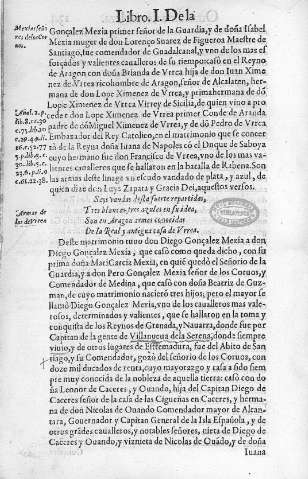 Libro. I. De la
Gonçalez Mexia primer señor de la Guardia, y de doña Isabel
Mexia muger de don Lorenço Suarez de Figueroa Maestre de
Santiago, fue comendador de Guadalcanal, y vno de los mas es
forçados y valientes caualleros de su tiempo: casó en el Reyno
de Aragon con doña Brianda de Vrrea hija de don Iuan Xime
nez de Vrrea ricohombre de Aragon, señor de Alcalaten, her
mana de don Lope Ximenez de Vrrea, y prima hermana de dō
Lope Ximenez de Vrrea Virrey de Sicilia, de quien vino a pro
ceder don Lope Ximenez de Vrrea primer Conde de Aranda
padre de dō Miguel Ximenez de Vrrea, y de dō Pedro de Vrrea
Embaxador del Rey Catolico, en el matrimonio que se concer
tó de la Reyna doña Iuana de Napoles có el Duque de Saboya
cuyo hermano fue don Francisco de Vrrea, vno de los mas va
lientes caualleros que se hallaron en la batalla de Rabena. Son
las armas deste linage vn escudo vandado de plata, y azul, de
quien dizen don Luys Zapata y Gracia Dei, aquestos versos.
Seys vandas desta suerte repartidas,
Tres blancas, tres azules en su idea,
Son en Aragon armas conocidas
De la Real y antigua casa de Vrrea.
Deste matrimonio tuuo don Diego Gonçalez Mexia a don
Diego Gonçalez Mexia, que casó como queda dicho, con su
prima doña Maria Garcia Mexia, en quiē quedó el Señorio de la
Guardia, y a don Pero Gonçalez Mexia señor de los Coruos, y
Comendador de Medina, que casó con doña Beatriz de Guz-
man, de cuyo matrimonio nacieró tres hijos; pero el mayor se
llamó Diego Gonçalez Mexia, vno de los caualleros mas vale-
rosos, determinados y valientes, que se hallaron en la toma y
conquista de los Reynos de Granada, y Nauarra, donde fue por
Capitan de la gente de Villanueua de la Serena, donde siempre
viuio, y de otros lugares de Estremadura, fue del Abito de San
tiago, y su Comendador, gozó del señorio de los Coruos, con
doze mil ducados de renta, cuyo mayorazgo y casa a sido siem
pre muy conocida de la nobleza de aquella tierra: casó con do
ña Lenor de Caceres, y Ouando, hija del Capitan Diego de
Caceres señor de la casa de las Cigueñas en Caceres, y herma-
na de don Nicolas de Ouando Comendador mayor de Alcan-
tara, Gouernador y Capitan General de la Isla Española, y de
otros grādes caualleros, y notables señores, nieta de Diego de
Caceres y Ouando, y viznieta de Nicolas de Ouādo, y de doña
Iuana